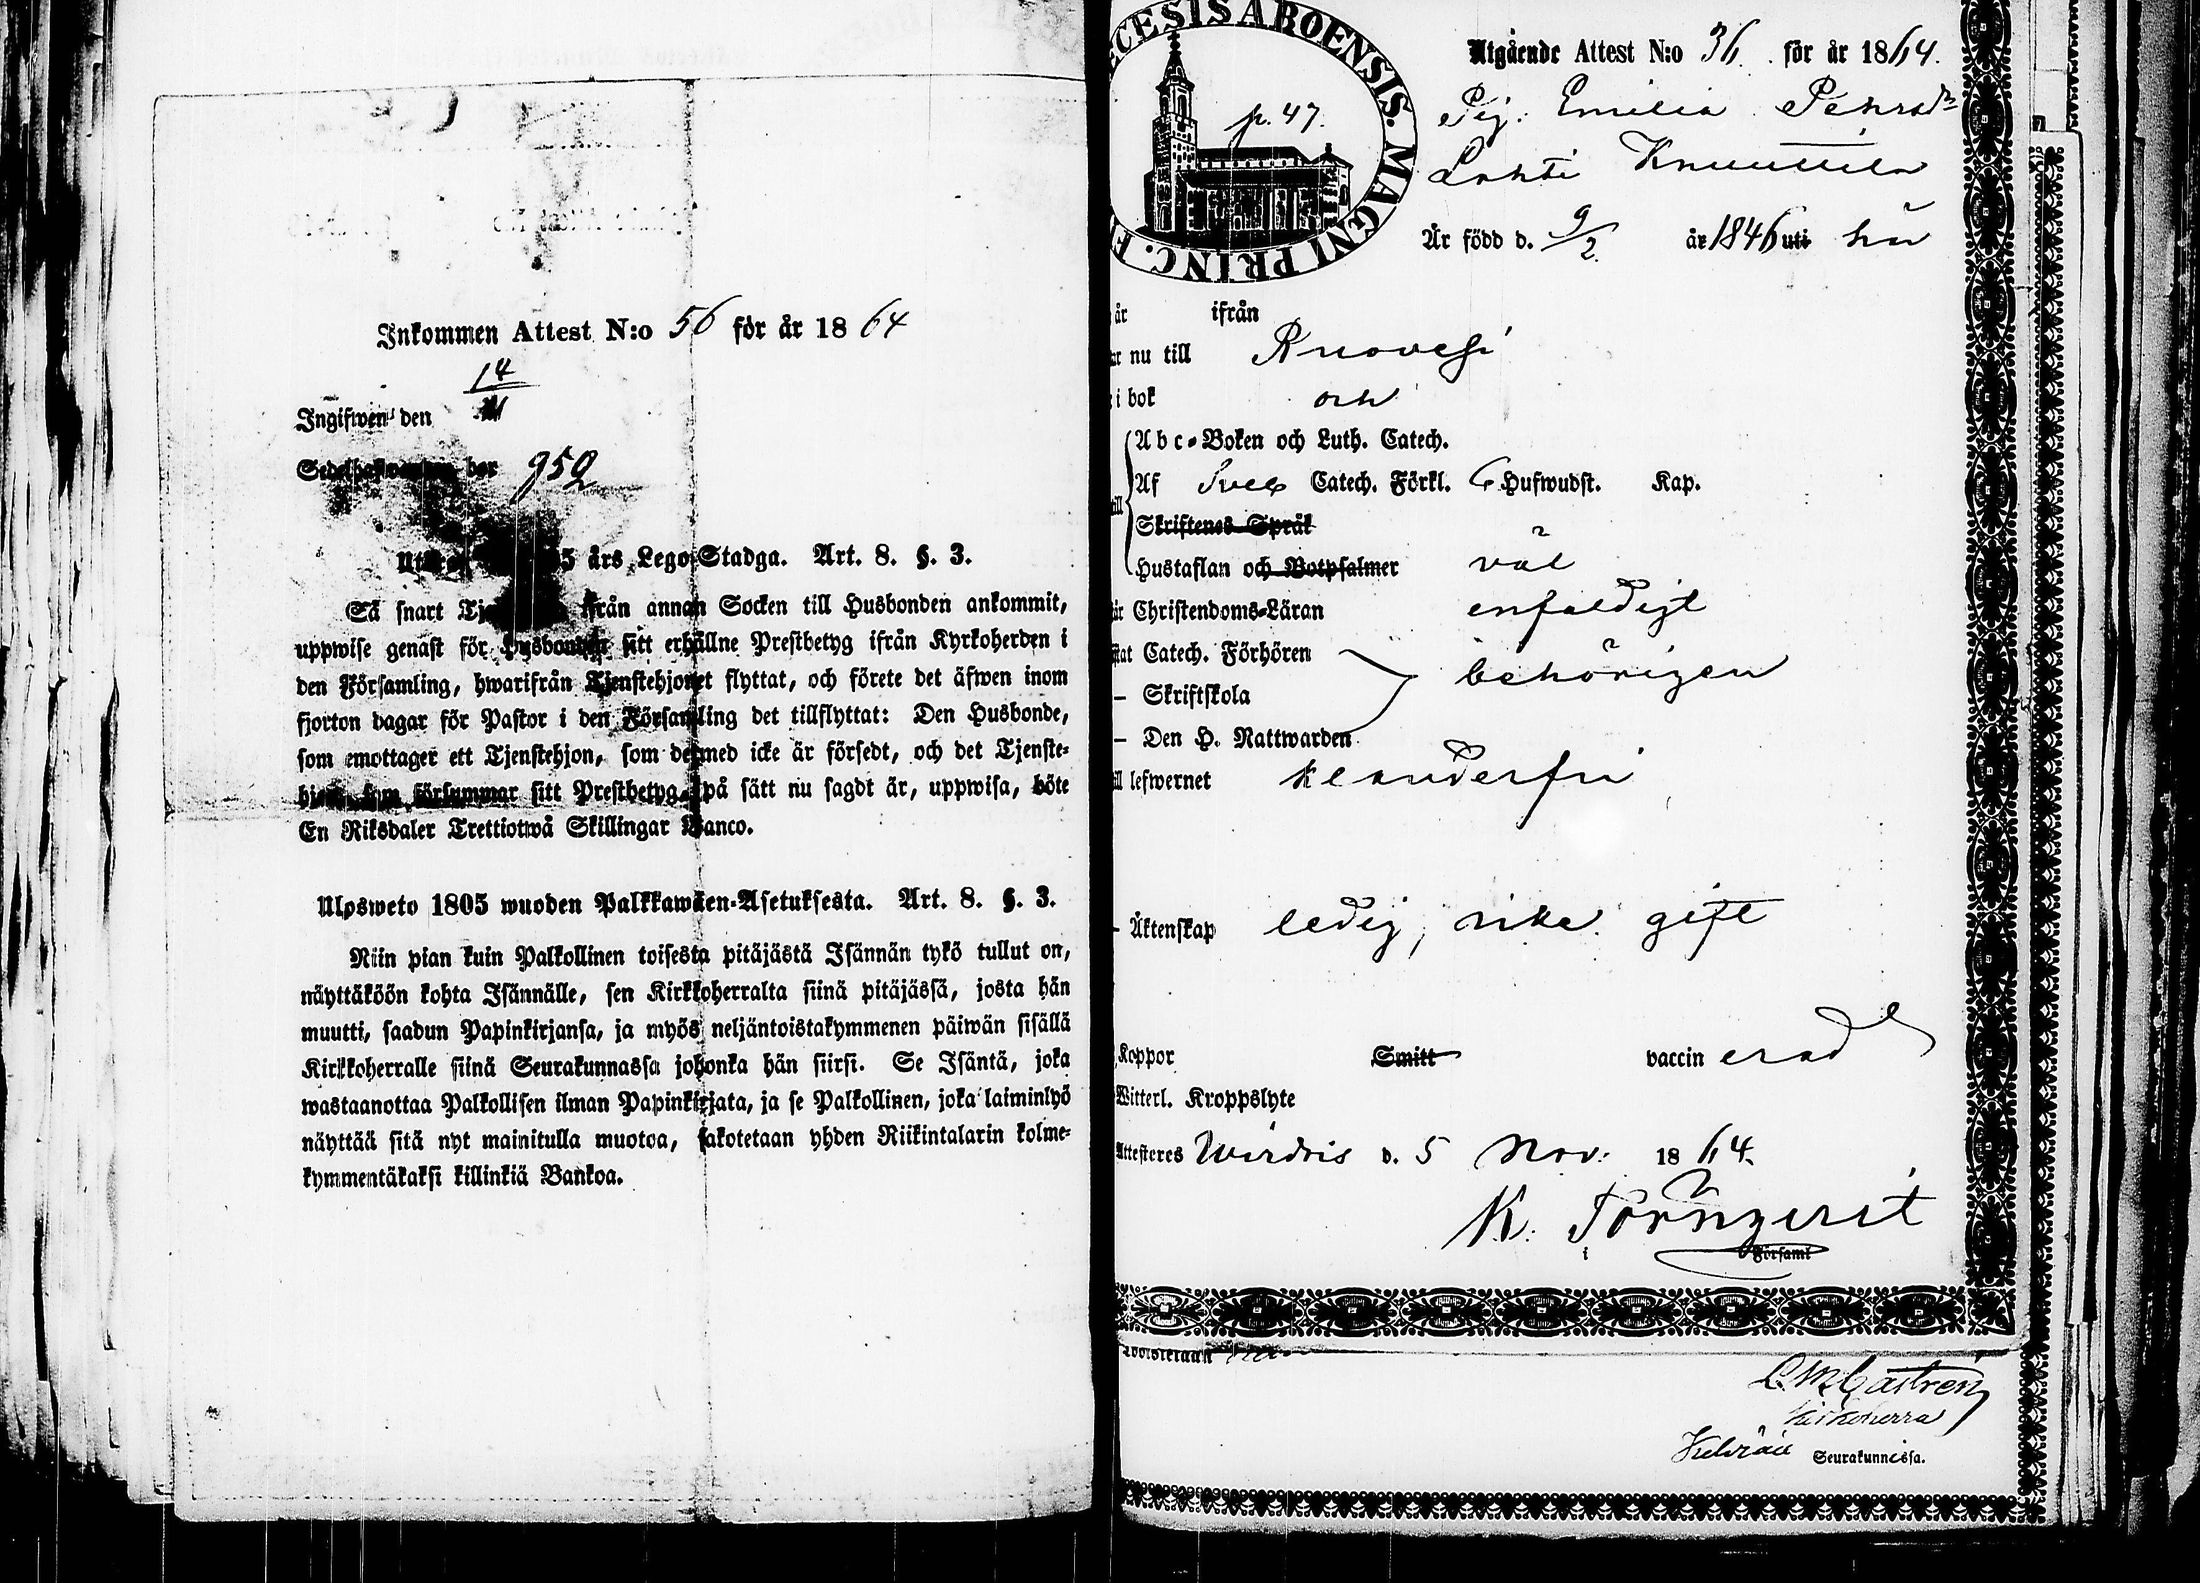 Inkommen Attest N:o 56 för år 1864
14
11
Ingifwen den
952
års Lego-Stadga. Art. 8. §. 3.
Så snart ifrån annan Socken till Husbonden ankommit,
uppwise genast för Husbonden sitt erhållne Prestbetyg ifrån Kyrkoherden i
den Församling, hwarifrån Tjenstehjonet flyttat, och förete det äfwen inom
fjorton dagar för Pastor i den Församling det tillflyttat: Den Husbonde,
som emottager ett Tjenstehjon, som dermed icke är försedt, och det Tjenste-
hjon, som försummar sitt Prestbetyg, på sätt nu sagdt är, uppwisa, böte
En Riksdaler Trettiotwå Skillingar Banco.
Ulosweto 1805 wuoden Palkkawäen-Asetuksesta. Art. 8. §. 3.
Niin pian kuin Palkollinen toisesta pitäjästä Isännän tykö tullut on,
näyttäköön kohta Isännälle, sen Kirkkoherralta siinä pitäjässä, josta hän
muutti, saadun Papinkirjansa, ja myös neljäntoistakymmenen päiwän sisällä
Kirkkoherralle siinä Seurakunnassa johonka hän siirsi. Se Isäntä, joka
wastaanottaa Palkollisen ilman Papinkirjata, ja se Palkollinen, joka laiminlyö
näyttää sitä nyt mainitulla muotoa, sakotetaan yhden Riikintalarin kolme-
kymmentäkaksi killinkiä Bankoa.
ECESIS ABOENSIS. MAGNI PRINC. F
p. 47.
Utgående Attest N:o 36. för år 1864.
Pig. Emilia Pehrsdr
Lahti Knuuttila
Är född d. 9/2. år 1846 uti här
år ifrån
nu till Ruovesi
i bok och
Abc-Boken och Luth. Catech.
Af Sveb Catech. Förkl. 6 Hufwudst. Kap.
Skriftenes Språk
Hustaflan och Botpsalmer väl
Christendoms-Läran enfaldigt
Catech. Förhören
behörigen
– Skriftskola
– Den H. Nattwarden
lefwernet klanderfri
– Äktenskap ledig, icke gift
Koppor Smitt vaccinerad
Witterl. Kroppslyte
Attesteres Wirdois d. 5 Nov. 1864.
K. Törnqvist
i Församl
L. M. Castrén
Kirkoherra
Keuruu Seurakunnissa.